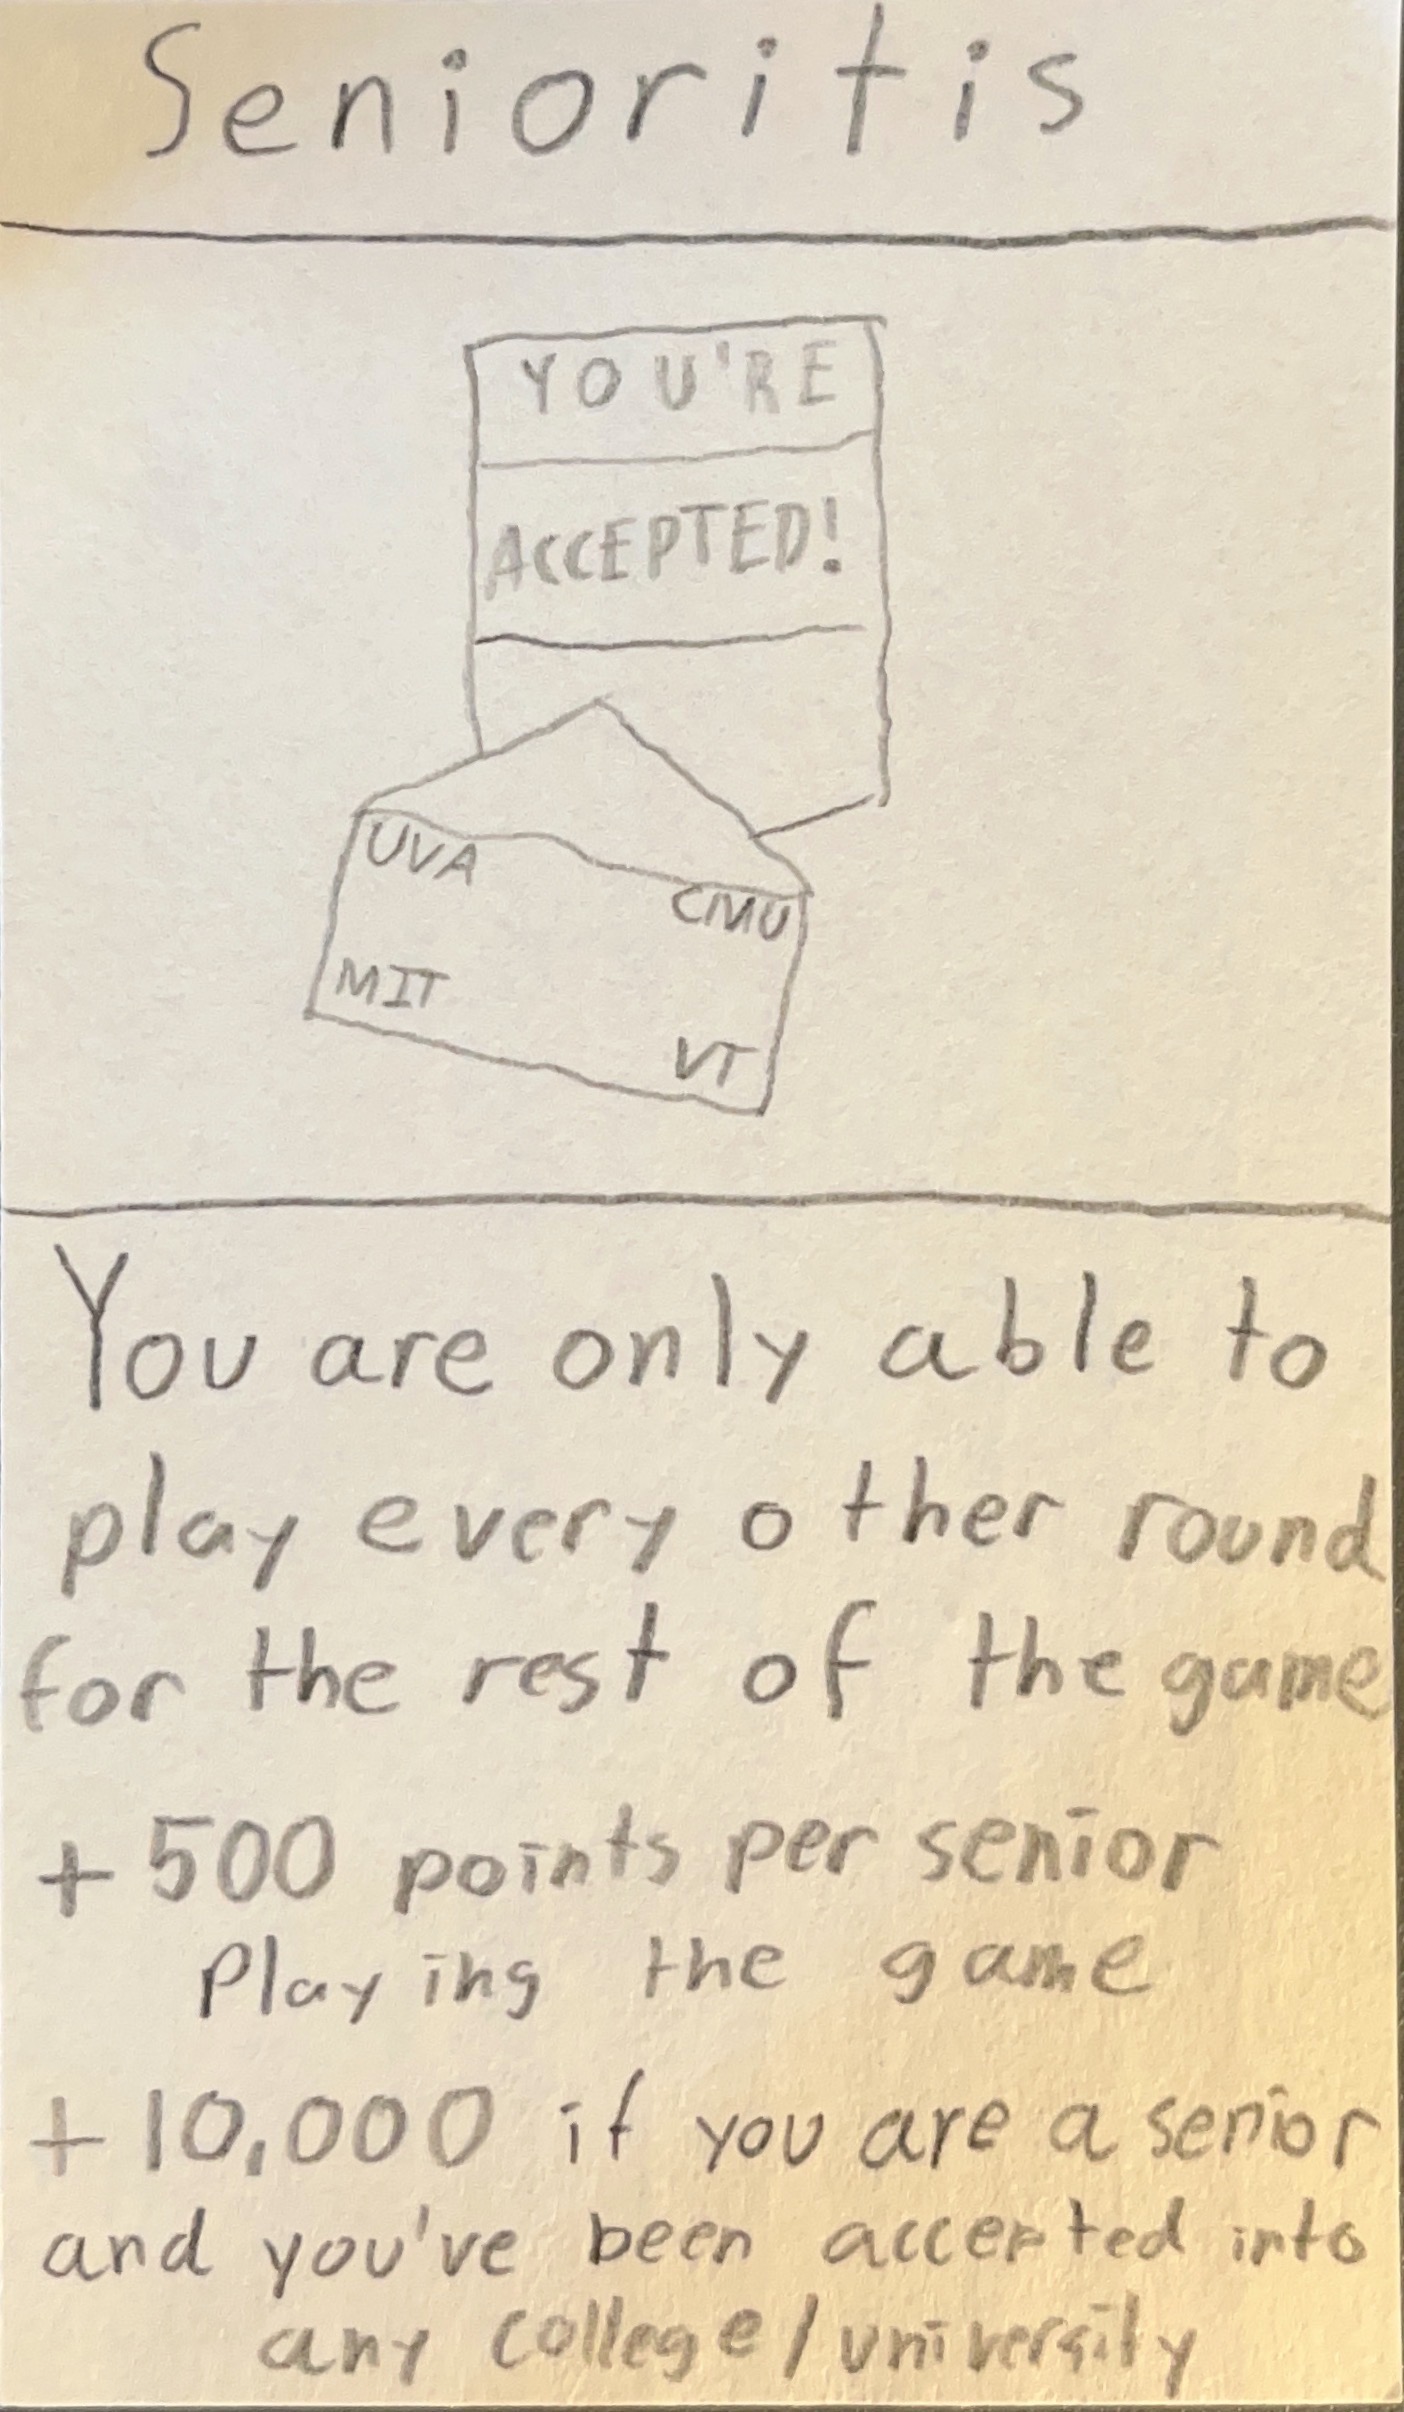 Senioritis
YOU'RE
ACCEPTED!
UVA
CMU
MIT
VT
You are only able to
play every other round
for the rest of the game
+ 500 points per senior
Playing the game
+ 10,000 if you are a senior
and you've been accepted into
any college/university